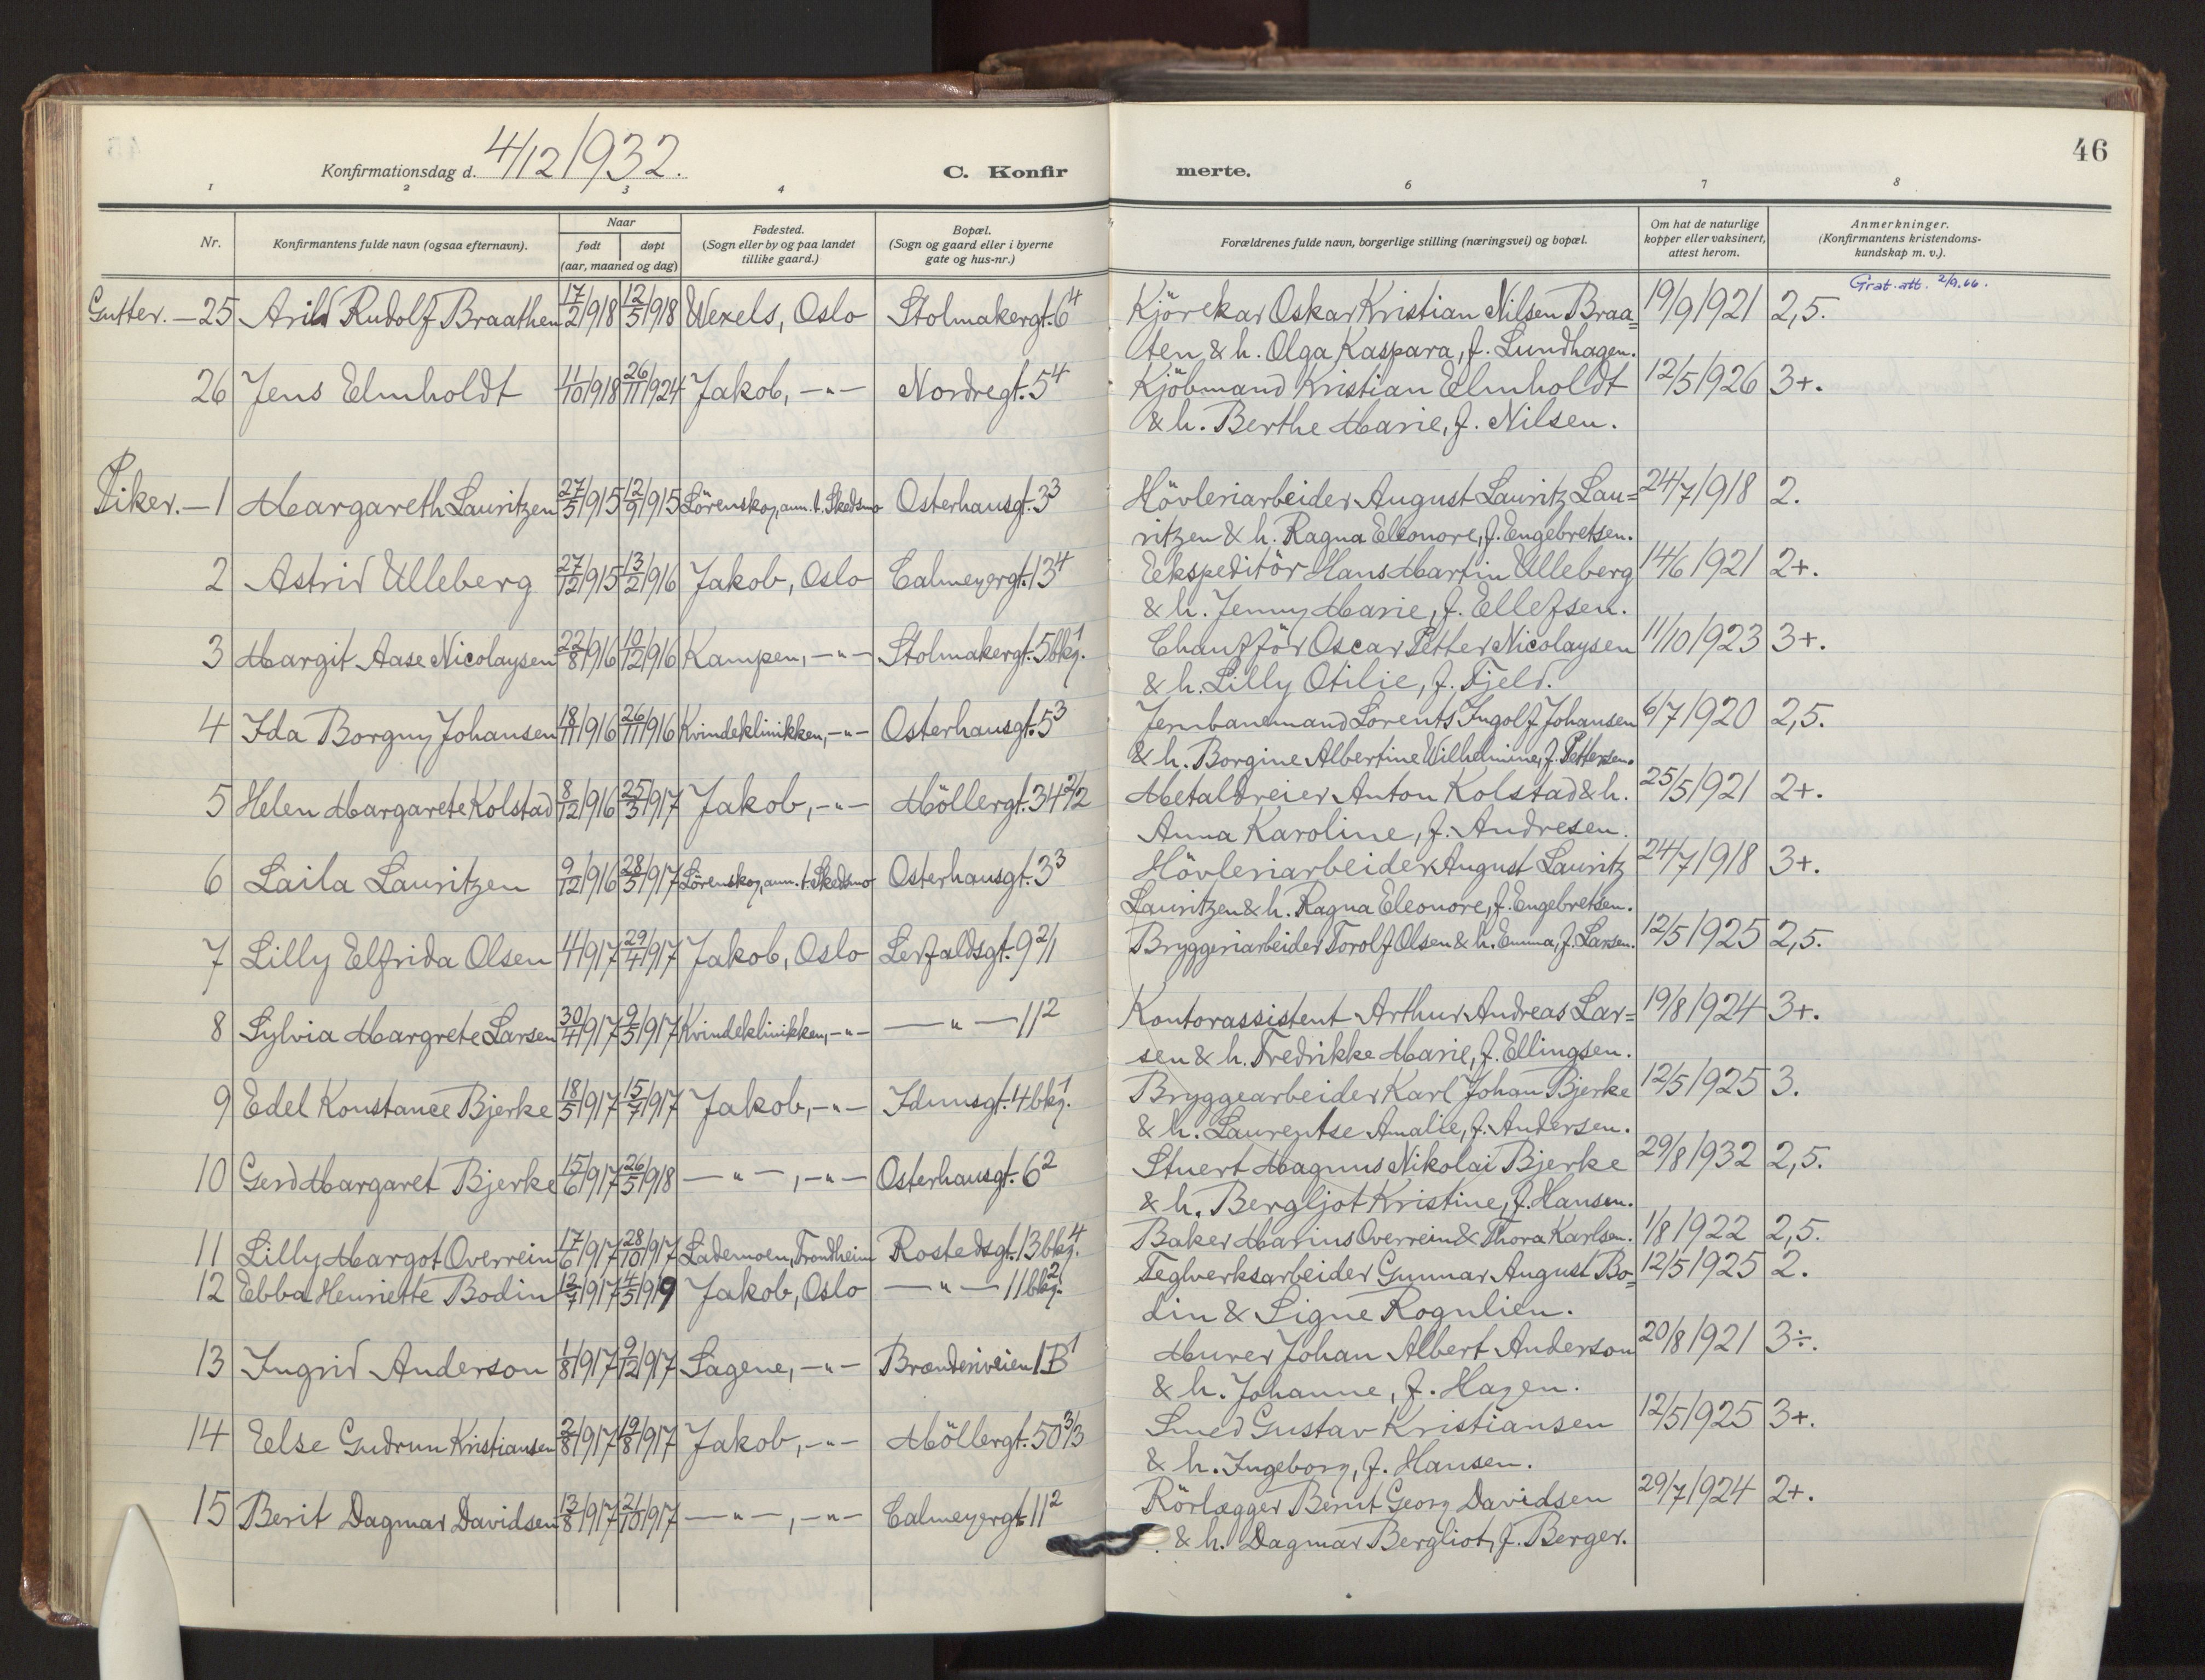 46
Konfirmationsdag d. 4/12 1932.
C. Konfirmerte.
1 2 3 4 6 7 8
Nr. | Konfirmantens fulde navn (ogsaa efternavn). | Naar født døpt (aar, maaned og dag) | Fødested. (Sogn eller by og paa landet tillike gaard.) | Bopæl. (Sogn og gaard eller i byerne gate og hus-nr.) | Forældrenes fulde navn, borgerlige stilling (næringsvei) og bopæl. | Om hat de naturlige kopper eller vaksinert, attest herom. | Anmerkninger. (Konfirmantens kristendomskundskap m. v.).
Gutter. — 25 Arild Rudolf Braathen 17/2 1918 12/5 1918 Wexels, Oslo Stolmakergt. 6⁴ Kjörekar Oskar Kristian Nilsen Braa= 19/9 1921 2,5. Grat. att. 2/9.66.
ten & h. Olga Kaspara, f. Lundhagen.
26 Jens Elmholdt 11/10 1918 26/11 1924 Jakob, -"- Nordregt. 5⁴ Kjöbmand Kristian Elmholdt 12/5 1926 3+.
& h. Berthe Marie, f. Nilsen.
Piker. — 1 Margareth Lauritzen 27/5 1915 12/9 1915 Lörenskog, ann. t. Skedsmo Osterhausgt. 3³ Hövleriarbeider August Lauritz Lau= 24/7 1918 2.
ritzen & h. Ragna Eleonore, f. Engebretsen.
2 Astrid Ulleberg 27/12 1915 13/2 1916 Jakob, Oslo Calmeyergt. 13⁴ Eekspeditör Hans Martin Ulleberg 14/6 1921 2+.
& h. Jenny Marie, f. Ellefsen.
3 Margit Aase Nicolaysen 22/8 1916 10/12 1916 Kampen, -"- Stolmakergt. 5 bkg.¹ Chaufför Oscar Petter Nicolaysen 11/10 1923 3+.
& h. Lilly Otilie, f. Fjeld.
4 Ida Borgny Johansen 18/11 1916 26/11 1916 Kvindeklinikken, -"- Osterhausgt. 5³ Jernbanemand Lorents Ingolf Johansen 6/7 1920 2,5.
& h. Borgine Albertine Wilhelmine, f. Pettersen.
5 Helen Margarete Kolstad 8/12 1916 25/3 1917 Jakob, -"- Möllergt. 34 2/2 Metaldreier Anton Kolstad & h. 25/5 1921 2+.
Anna Karoline, f. Andresen.
6 Laila Lauritzen 9/12 1916 28/5 1917 Lörenskog, ann. t. Skedsmo Osterhausgt. 3³ Hövleriarbeider August Lauritz 24/7 1918 3+.
Lauritzen & h. Ragna Eleonore, f. Engebretsen.
7 Lilly Elfrida Olsen 4/1 1917 29/4 1917 Jakob, Oslo Lerfaldsgt. 9 2/1 Bryggeriarbeider Torolf Olsen & h. Emma, f. Larsen. 12/5 1925 2,5.
8 Sylvia Margrete Larsen 30/4 1917 9/5 1917 Kvindeklinikken, -"- —"— 11² Kontorassistent Arthur Andreas Lar= 19/8 1924 3+.
sen & h. Fredrikke Marie, f. Ellingsen.
9 Edel Konstance Bjerke 18/5 1917 15/7 1917 Jakob, -"- Idunsgt. 4 bkg.¹ Bryggearbeider Karl Johan Bjerke 12/5 1925 3.
& h. Laurentse Amalie, f. Andersen.
10 Gerd Margaret Bjerke 15/6 1917 26/5 1918 —"—, -"- Osterhausgt. 6² Stuert Magnus Nikolai Bjerke 29/8 1932 2,5.
& h. Bergljot Kristine, f. Hansen.
11 Lilly Margot Overrein 17/6 1917 28/10 1917 Lademoen, Trondheim Rostedsgt. 13 bkg.⁴ Baker Marius Overrein & Thora Karlsen. 1/8 1922 2,5.
12 Ebba Henriette Bodin 12/7 1917 4/5 1919 Jakob, Oslo —"— 11 bkg.² Teglverksarbeider Gunnar August Bo= 12/5 1925 2.
din & Signe Rognlien.
13 Ingrid Anderson 1/8 1917 9/12 1917 Sagene, -"- Brænderiveien 1 B¹ Murer Johan Albert Anderson 20/8 1921 3÷.
& h. Johanne, f. Hagen.
14 Else Gudrun Kristiansen 2/8 1917 19/8 1917 Jakob, -"- Möllergt. 50 3/3 Smed Gustav Kristiansen 12/5 1925 3+.
& h. Ingeborg, f. Hansen.
15 Berit Dagmar Davidsen 13/8 1917 21/10 1917 —"—, -"- Calmeyergt. 11² Rörlægger Bernt Georg Davidsen 29/7 1924 2+.
& h. Dagmar Bergliot, f. Berger.